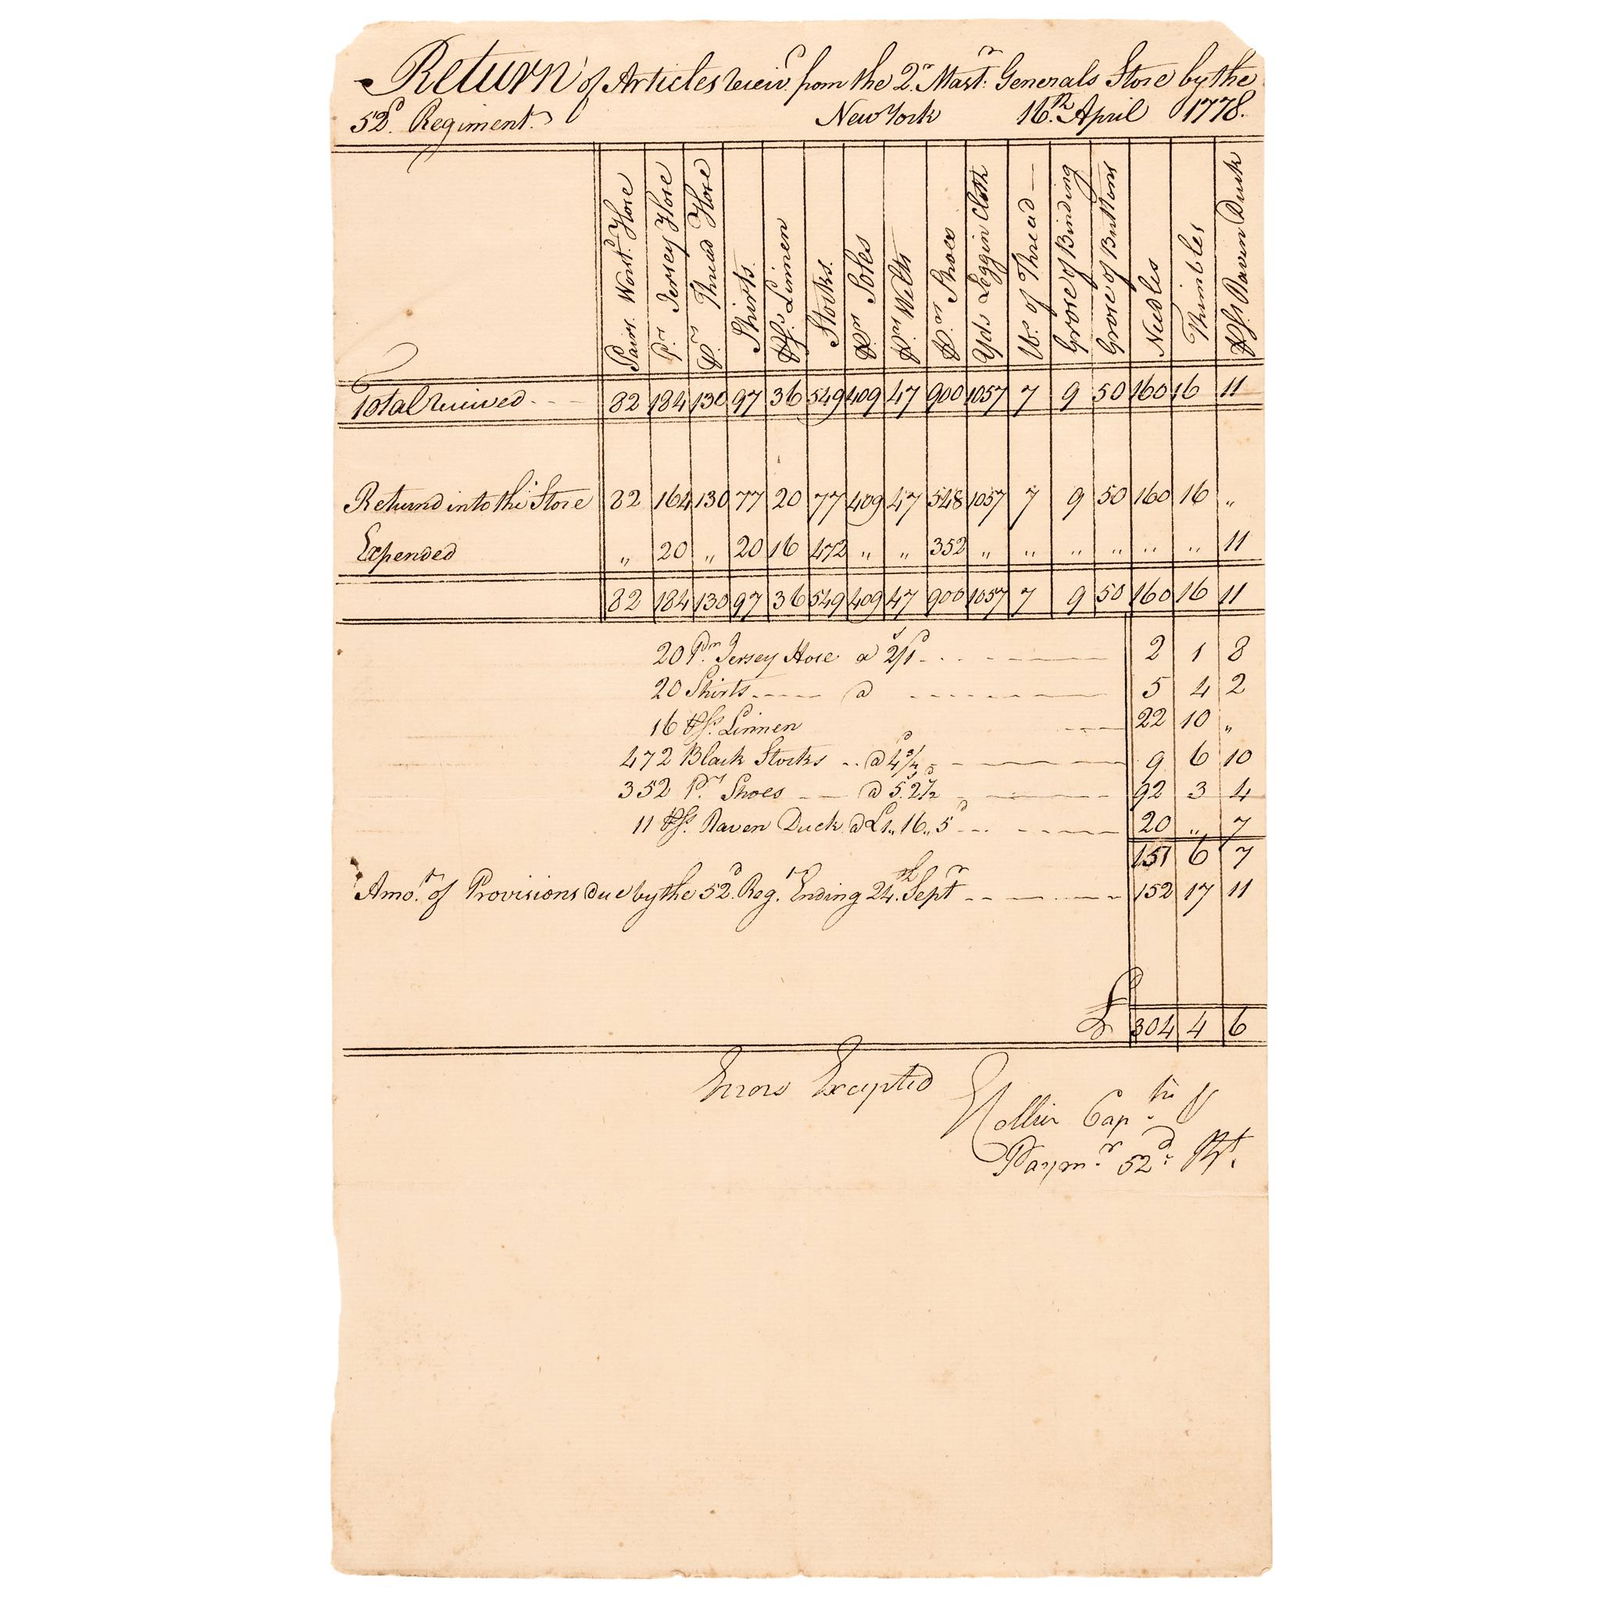 Return of Articles receiv.d from the Q.r Mast.r Generals Store by the
52.d Regiment. New York 16.th April 1778.
Pairs Worst.d Hose
P.rs Jersey Hose
P.rs Thread Hose
Shirts.
P.s Linnen
Stocks.
P.rs Soles
P.rs Welts
P.rs Shoes
Yds Leggin Cloth
lb.s of Thread
Grose of Binding
Grose of Buttons
Needles
Thimbles
P.s Raven Duck
Total received 82 184 130 97 36 549 409 47 900 1057 7 9 50 160 16 11
Returnd into the Store 82 164 130 77 20 77 409 47 548 1057 7 9 50 160 16 "
Expended " 20 " 20 16 472 " " 352 " " " " " " 11
82 184 130 97 36 549 409 47 900 1057 7 9 50 160 16 11
20 P.rs Jersey Hose a 2/1 2 1 8
20 Shirts a 5 4 2
16 P.s Linnen 22 10 "
472 Black Stocks @ 4 3/4 9 6 10
352 P.rs Shoes @ 5.2 1/2 92 3 4
11 P.s Raven Duck @ £1,,16,,5 20 " 7
151 6 7
Amo.t of Provisions due by the 52.d Reg.t Ending 24.th Sept.r 152 17 11
£ 304 4 6
Errors Excepted
Collier Cap.tn &
Paym.r 52.d R.t